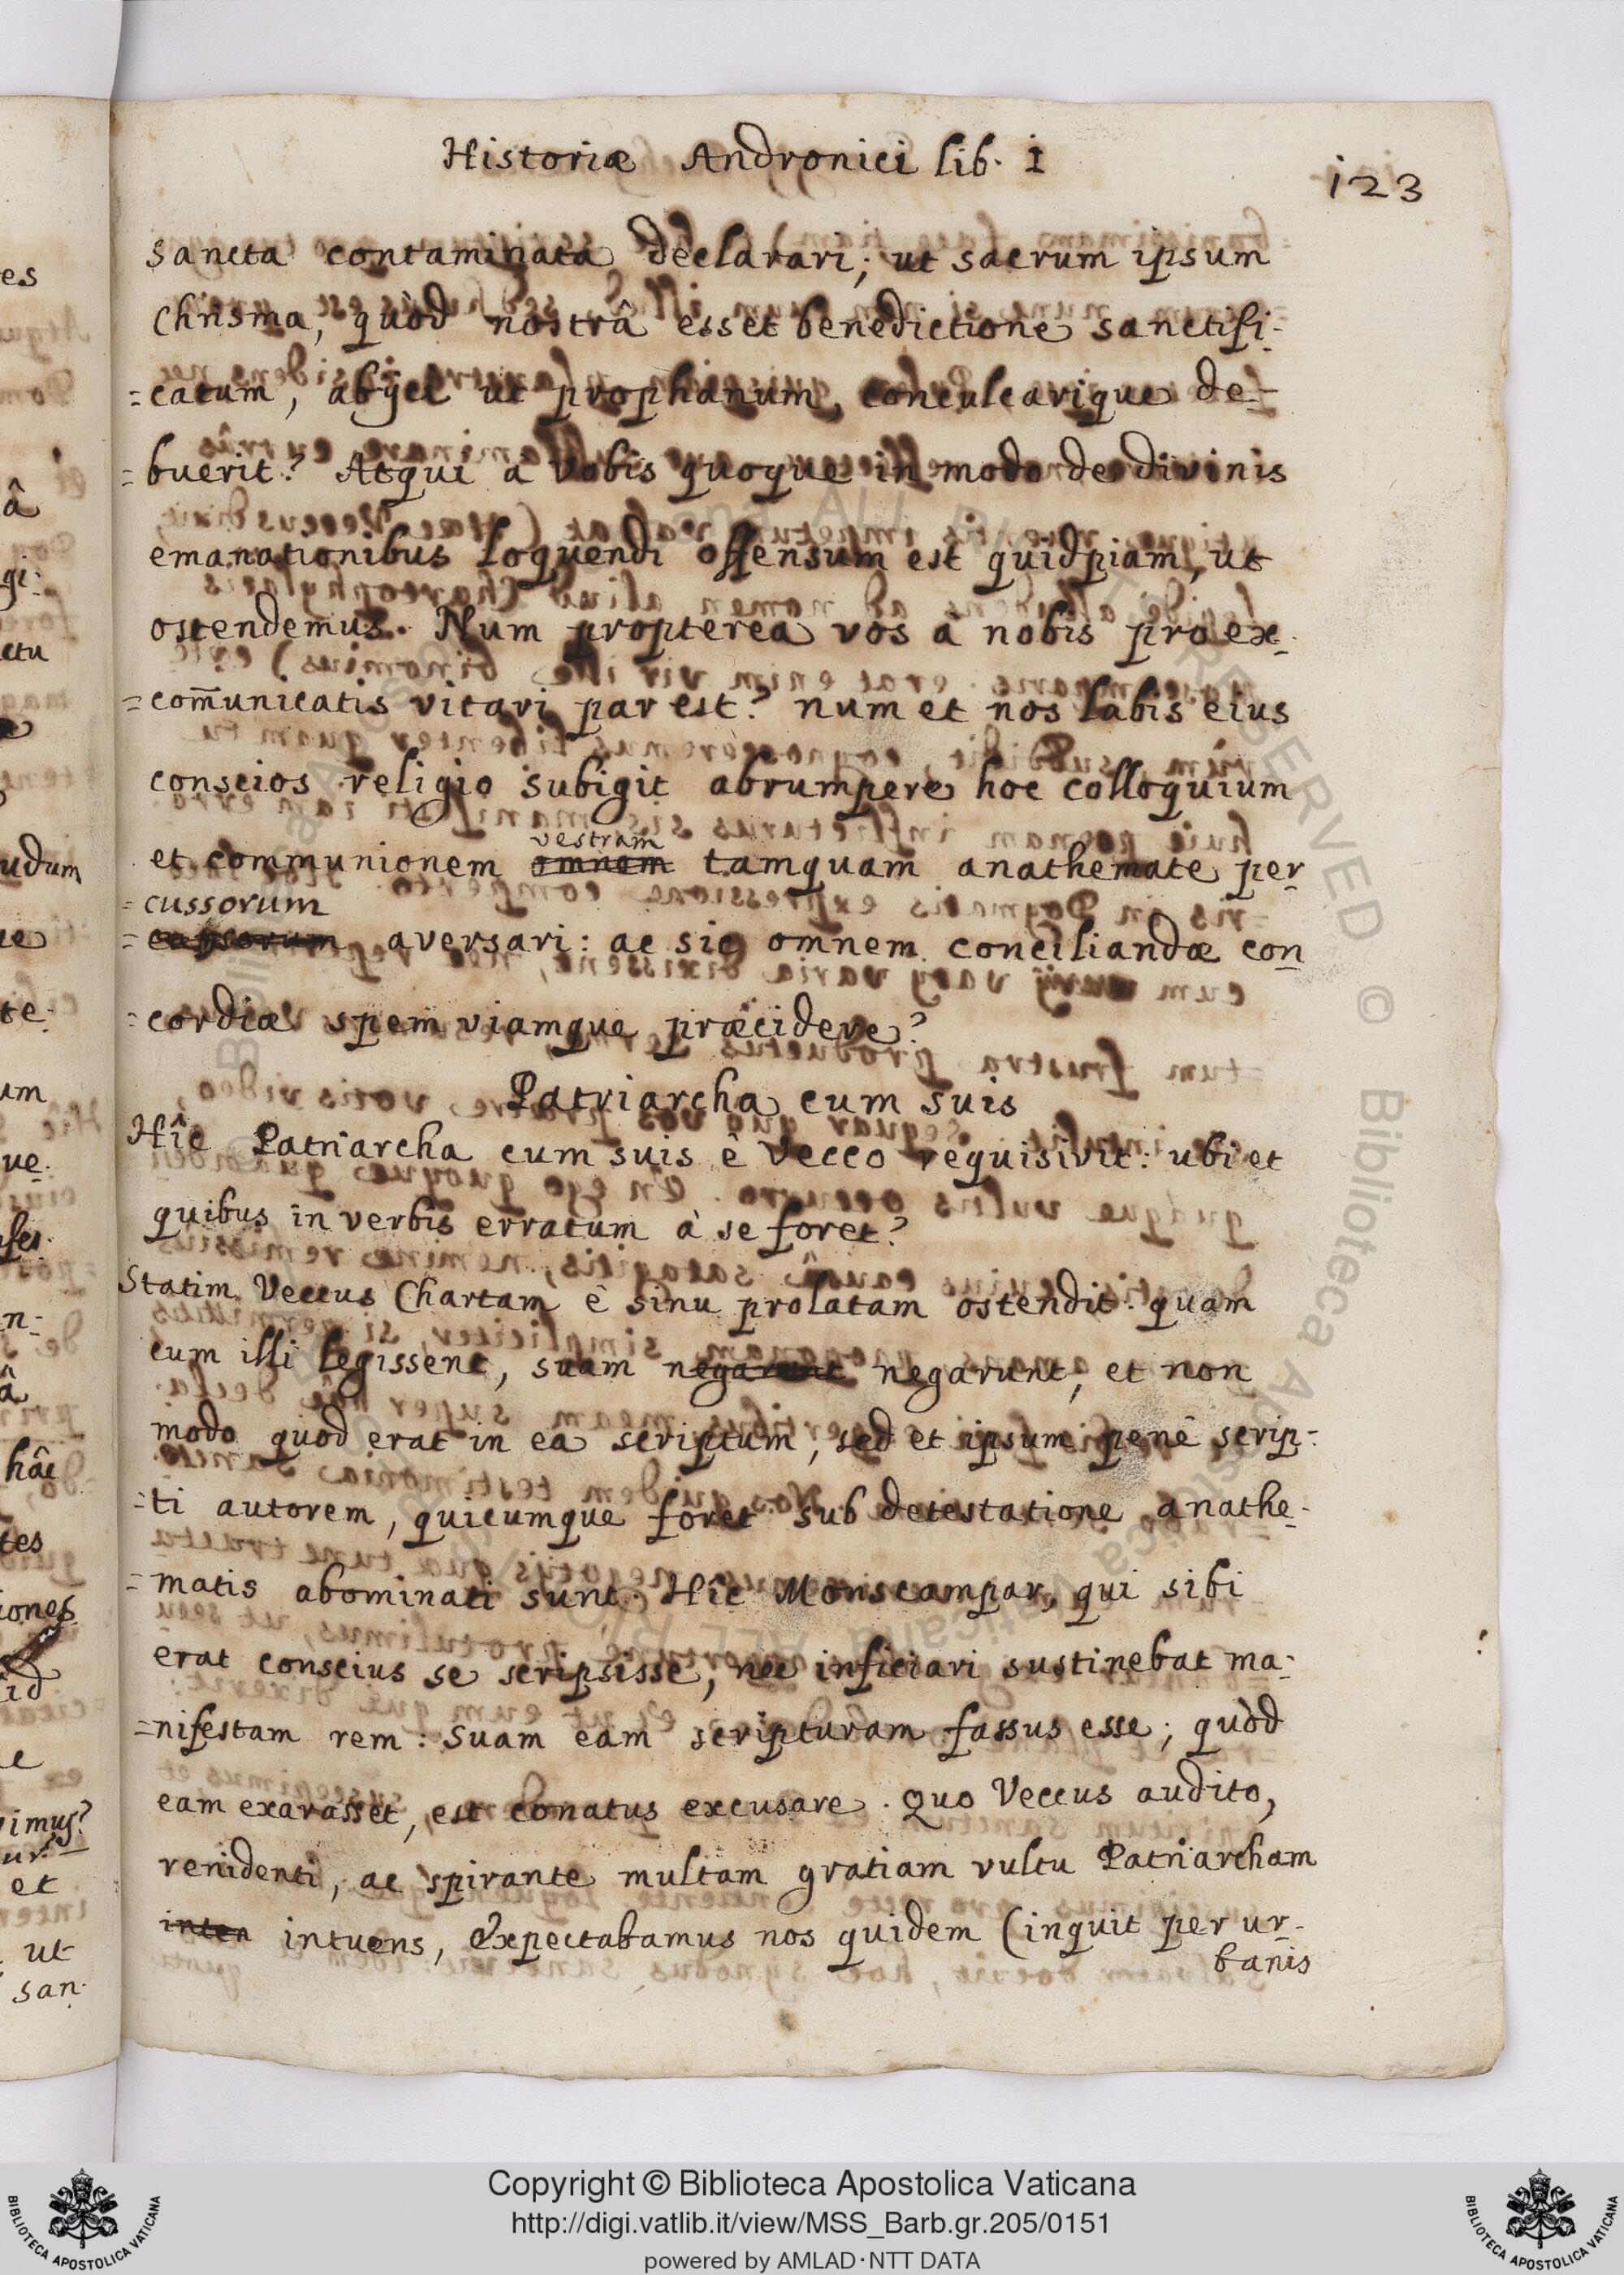 Historiæ Andronici lib. I
123
sancta contaminata declarari; ut sacrum ipsum
Chrisma, quòd nostrâ esset benedictione sanctifi-
=catum, abÿci ut prophanum, conculcarique de-
=buerit? Atqui a vobis quoque in modo de divinis
emanationibus loquendi offensum est quidpiam, ut
ostendemus. Num propterea vos a nobis pro ex-
=com̅unicatis vitari par est? num et nos labis eius
conscios religio subigit abrumpere hoc colloquium
vestram
et communionem omnem tamquam anathemate per-
=cussorum
= aversari: ac sic omnem conciliandæ con-
=cordiæ spem viamque præcidere?
Patriarcha cum suis
Hîc Patriarcha cum suis è Vecco requisivit: ubi et
quibus in verbis erratum à se foret?
Statim Veccus Chartam è sinu prolatam ostendit. quam
cum illi legissent, suam negarunt negarunt, et non
modo quod erat in ea scriptum, sed et ipsum penè scrip-
=ti autorem, quicumque foret sub detestatione anathe-
=matis abominati sunt. Hîc Monscampar, qui sibi
erat conscius se scripsisse, nec inficiari sustinebat ma-
=nifestam rem: suam eam scripturam fassus esse; quòd
eam exarasset, est conatus excusare. Quo Veccus audito,
renidenti, ac spirante multam gratiam vultu Patriarcham
inten intuens, Expectabamus nos quidem (inquit per ur-
banis
es
â
gi:
ctu
udum
te:
um
ue:
n:
â
hâc
tes
iones
id
imus?
et
ut
san:
Copyright © Biblioteca Apostolica Vaticana
http://digi.vatlib.it/view/MSS_Barb.gr.205/0151
powered by AMLAD·NTT DATA
BIBLIOTECA APOSTOLICA VATICANA
BIBLIOTECA APOSTOLICA VATICANA